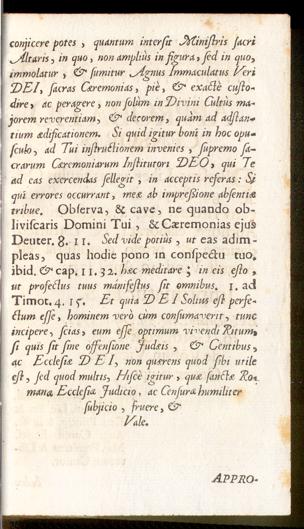 conjicere potes, quantum intersit Ministris sacri
Altaris, in quo, non ampliùs in figura, sed in quo,
immolatur, & sumitur Agnus Immaculatus Veri
DEI, sacras Cæremonias, piè, & exactè custo-
dire, ac peragere, non solùm in Divini Cultûs ma-
jorem reverentiam, & decorem, quàm ad adstan-
tium ædificationem. Si quid igitur boni in hoc opu-
sculo, ad Tui instructionem invenies, supremo sa-
crarum Cæremoniarum Institutori DEO, qui Te
ad eas exercendas sellegit, in acceptis referas: Si
qui errores occurrant, meæ ab impressione absentiæ
tribue. Observa, & cave, ne quando ob-
liviscaris Domini Tui, & Cæremonias ejus
Deuter. 8. 11. Sed vide potiùs, ut eas adim-
pleas, quas hodie pono in conspectu tuo.
ibid. & cap. 11. 32. hæc meditare; in eis esto,
ut profectus tuus manifestus sit omnibus. 1. ad
Timot. 4. 15. Et quia DEI Solius est perfe-
ctum esse, hominem verò cùm consumaverit, tunc
incipere, scias, eum esse optimum vivendi Ritum,
si quis sit sine offensione Judæis, & Gentibus,
ac Ecclesiæ DEI, non querens quod sibi utile
est, sed quod multis, Hisce igitur, quæ sanctæ Ro-
manæ Ecclesiæ Judicio, ac Censuræ humiliter
subjicio, fruere, &
Vale.
APPRO-